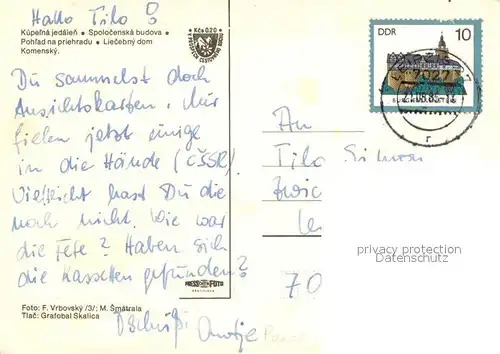 Hallo Tilo !
Kúpeľná jedáleň • Spoločenská budova •
Pohľad na priehradu • Liečebný dom
Komenský.
Kčs 0,20
DDR 10
Du sammelst doch
Ansichtskarten. Mir
fielen jetzt einige
in die Hände (ČSSR)
Vielleicht hast Du die
noch nicht. Wie war
die Fete? Haben sich
die Kassetten gefunden?
Tschüßi Antje
An
Tilo Simon
70
privacy protection
Datenschutz
PRESS FOTO
BRATISLAVA
Foto: F. Vrbovský /3/; M. Šmátrala
Tlač: Grafobal Skalica